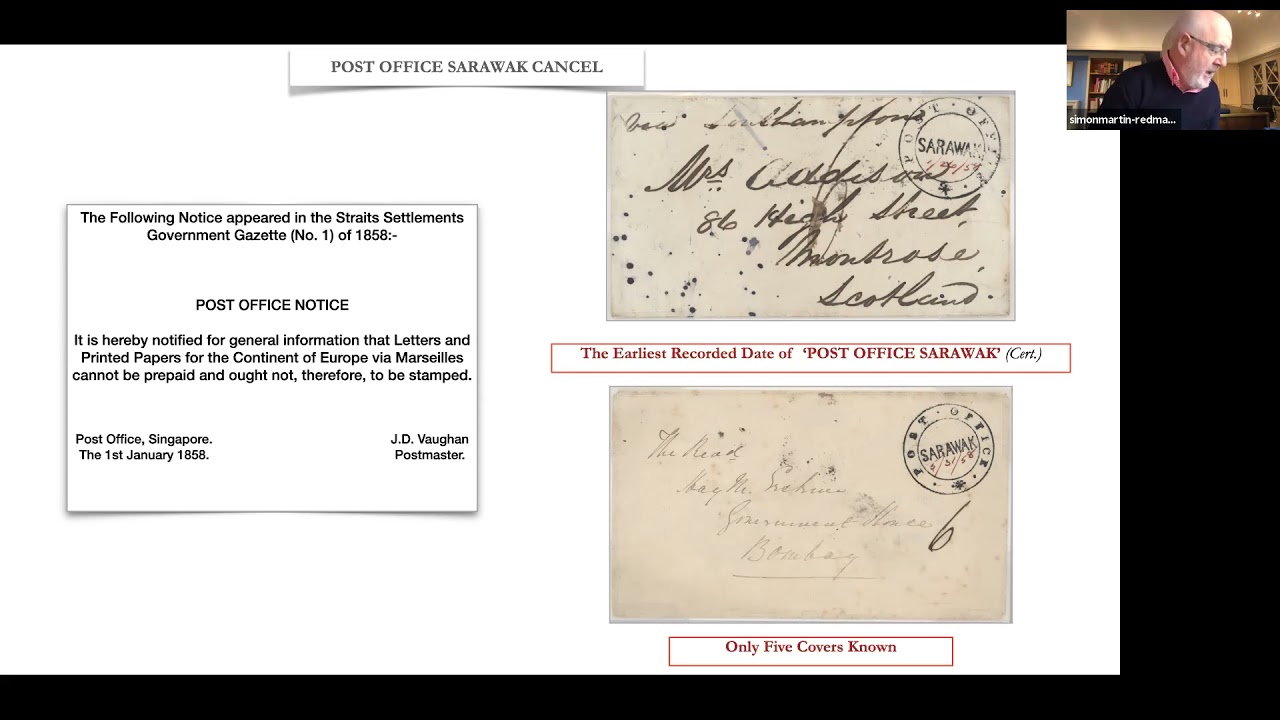 POST OFFICE SARAWAK CANCEL
simonmartin-redma...
The Following Notice appeared in the Straits Settlements
Government Gazette (No. 1) of 1858:-
POST OFFICE NOTICE
It is hereby notified for general information that Letters and
Printed Papers for the Continent of Europe via Marseilles
cannot be prepaid and ought not, therefore, to be stamped.
Post Office, Singapore.
The 1st January 1858.
J.D. Vaughan
Postmaster.
via Southampton
POST OFFICE
SARAWAK
Mrs Addison
86 High Street,
Montrose,
Scotland.
The Earliest Recorded Date of 'POST OFFICE SARAWAK' (Cert.)
POST OFFICE
SARAWAK
The
Government House
Bombay
6
Only Five Covers Known